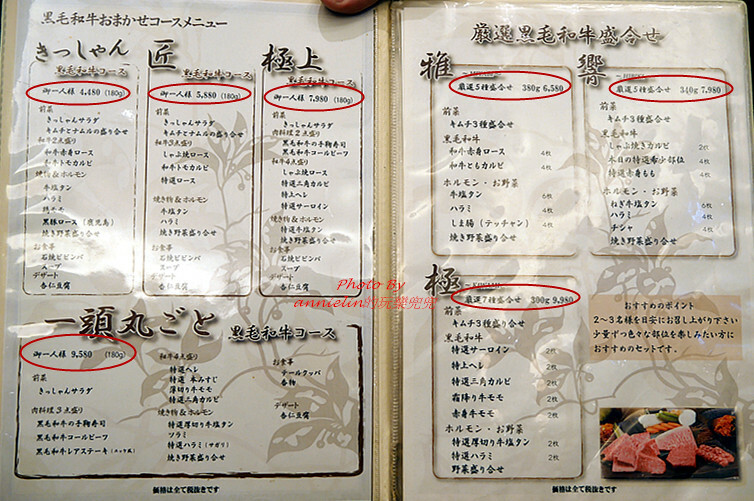 黒毛和牛おまかせコースメニュー
きっしゃん
黒毛和牛コース
御一人様 4,480 (180g)
前菜
きっしゃんサラダ
キムチとナムルの盛り合せ
和牛2点盛り
和牛赤身ロース
和牛トモカルビ
焼き物&ホルモン
牛塩タン
ハラミ
黒豚ロース(鹿児島)
焼き野菜盛り合せ
お食事
石焼ビビンバ
スープ
デザート
杏仁豆腐
匠
黒毛和牛コース
御一人様 5,880 (180g)
前菜
きっしゃんサラダ
キムチとナムルの盛り合せ
和牛3点盛り
しゃぶ焼ロース
和牛トモカルビ
特選ロース
焼き物&ホルモン
牛塩タン
ハラミ
焼き野菜盛り合せ
お食事
石焼ビビンバ
スープ
デザート
杏仁豆腐
極上
黒毛和牛コース
御一人様 7,980 (180g)
前菜
きっしゃんサラダ
肉料理2点盛り
黒毛和牛の手鞠寿司
黒毛和牛コールビーフ
和牛4点盛り
しゃぶ焼ロース
特選三角カルビ
特上ヘレ
特選サーロイン
焼き物&ホルモン
特選牛塩タン
ハラミ
焼き野菜盛り合せ
お食事
石焼ビビンバ
スープ
デザート
杏仁豆腐
一頭丸ごと 黒毛和牛コース
御一人様 9,580 (180g)
前菜
きっしゃんサラダ
肉料理3点盛り
黒毛和牛の手鞠寿司
黒毛和牛コールビーフ
黒毛和牛レアステーキ
和牛4点盛り
特選ヘレ
特選 本みすじ
薄切り牛モモ
特選三角カルビ
焼き物&ホルモン
特選厚切り牛塩タン
ツラミ
特選ハラミ(サガリ)
焼き野菜盛り合せ
お食事
テールクッパ
各物
デザート
杏仁豆腐
価格は全て税抜きです
厳選黒毛和牛盛合せ
雅
~ MIYABI ~
厳選5種盛合せ 380g 6,580
前菜
キムチ3種盛り合せ
黒毛和牛
和牛赤身ロース 4枚
和牛ともカルビ 4枚
ホルモン・お野菜
牛塩タン 6枚
ハラミ 4枚
しま腸(テッチャン) 4枚
焼き野菜盛り合せ
響
~ HIBIKI ~
厳選5種盛合せ 340g 7,980
前菜
キムチ3種盛り合せ
黒毛和牛
しゃぶ焼きカルビ 2枚
本日の特選希少部位 4枚
特選赤身もも 4枚
ホルモン・お野菜
ねぎ牛塩タン 6枚
ハラミ 4枚
チシャ
焼き野菜盛り合せ
極
~ KIWAMI ~
厳選7種盛合せ 300g 9,980
前菜
キムチ3種盛り合せ
黒毛和牛
特選サーロイン 2枚
特上ヘレ 2枚
特選三角カルビ 2枚
霜降り牛モモ 2枚
赤身牛モモ 2枚
ホルモン・お野菜
特選厚切り牛塩タン 2枚
特選ハラミ 2枚
野菜盛り合せ
おすすめのポイント
2~3名様を目安にお召し上がり下さい
少量ずつ色々な部位を楽しみたい方に
おすすめのセットです。
価格は全て税抜きです
Photo By
annielin的玩樂兜兜